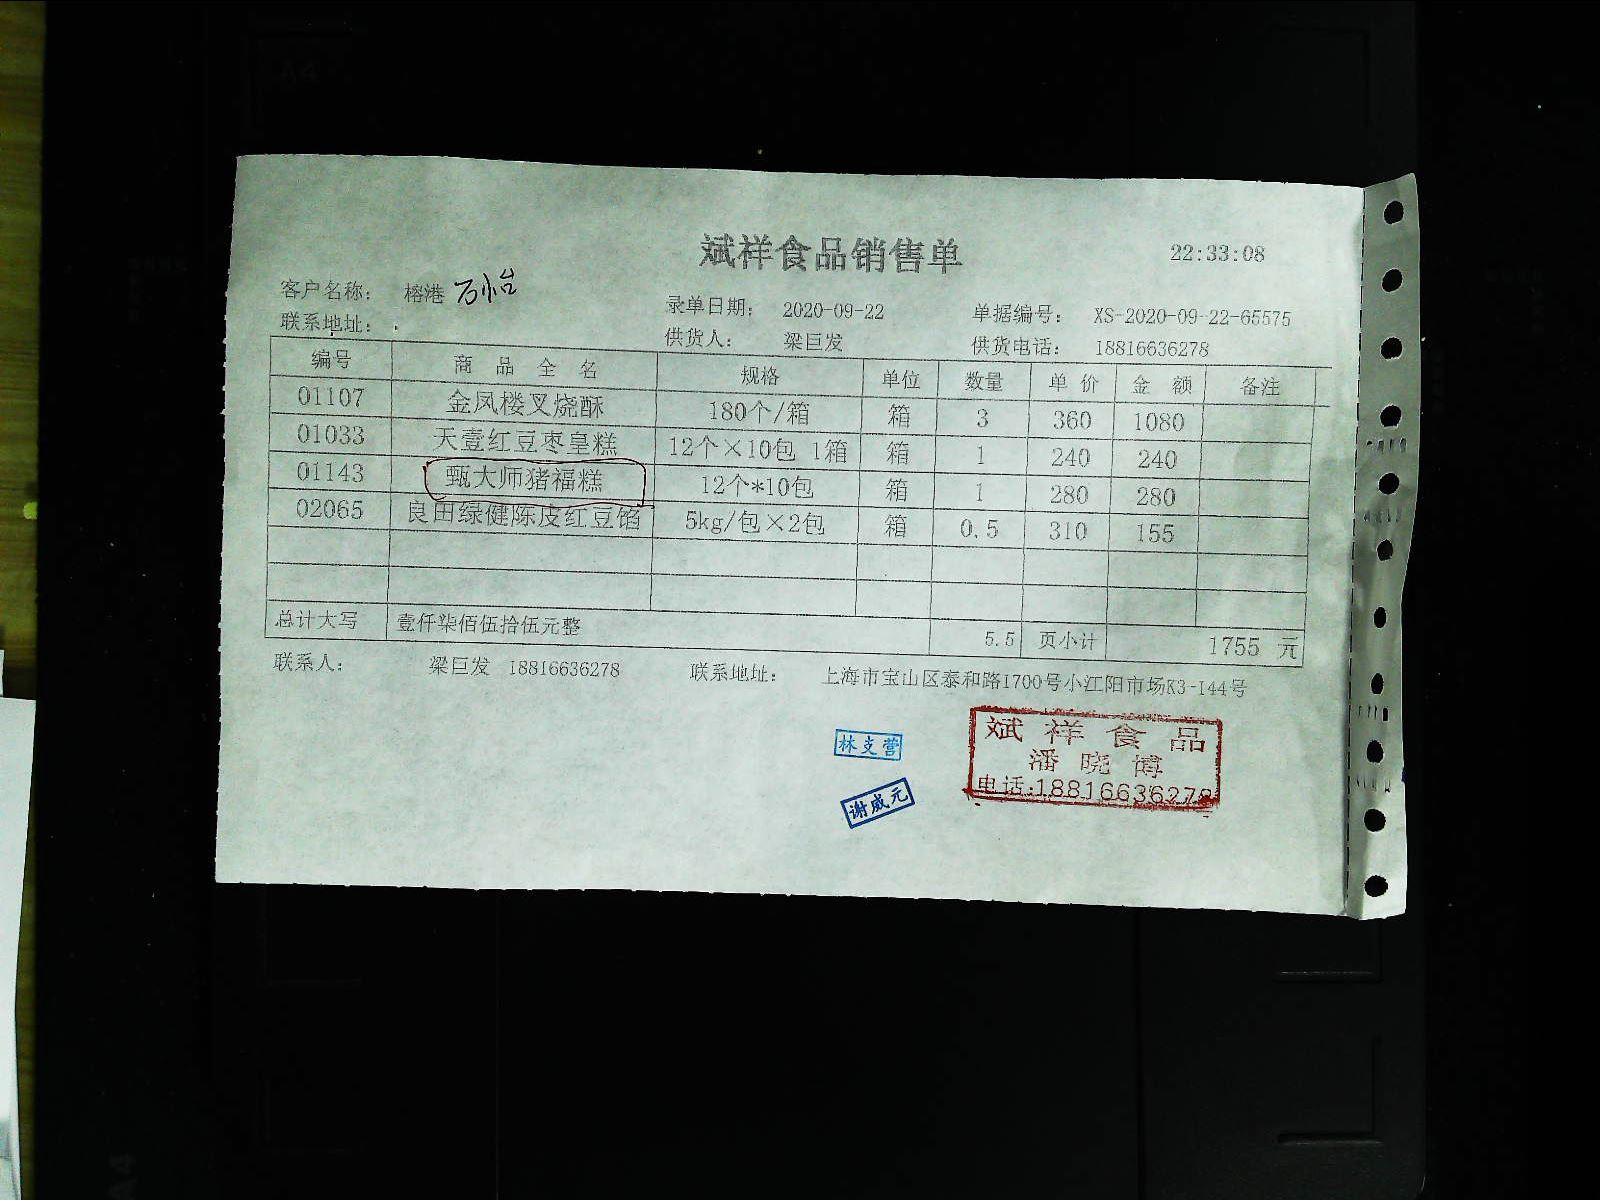 斌祥食品销售单
22:33:08
客户名称： 榕港 万小怡
录单日期： 2020-09-22 单据编号： XS-2020-09-22-65575
联系地址： .
供货人： 梁巨发 供货电话： 18816636278
编号 商 品 全 名 规格 单位 数量 单 价 金 额 备注
01107 金凤楼叉烧酥 180个/箱 箱 3 360 1080
01033 天壹红豆枣皇糕 12个×10包 1箱 箱 1 240 240
01143 甄大师猪福糕 12个*10包 箱 1 280 280
02065 良田绿健陈皮红豆馅 5kg/包×2包 箱 0.5 310 155
总计大写 壹仟柒佰伍拾伍元整 5.5 页小计 1755 元
联系人： 梁巨发 18816636278 联系地址： 上海市宝山区泰和路1700号小江阳市场K3-144号
林支营
谢威元
斌祥食品
潘晓博
电话:18816636278